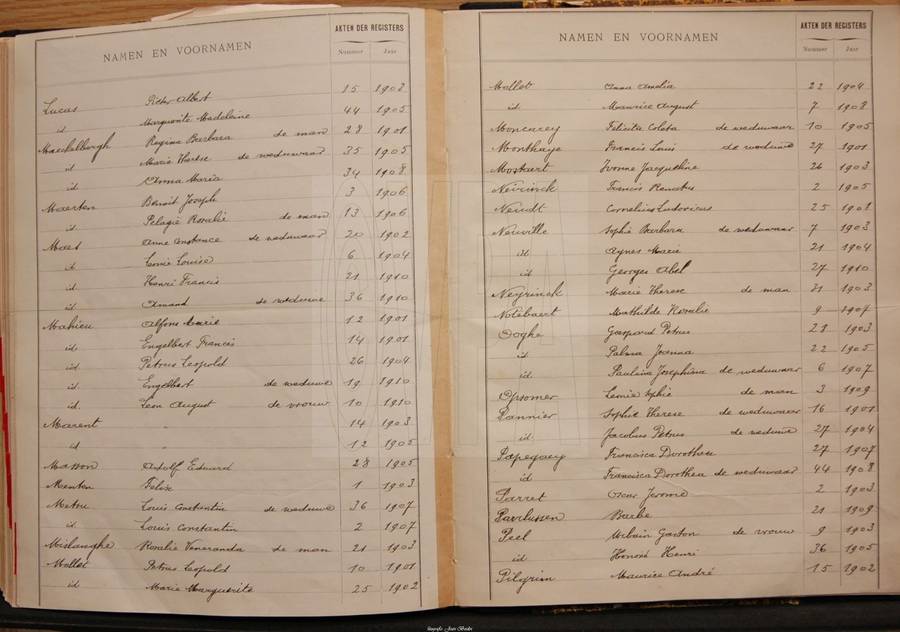 NAMEN EN VOORNAMEN AKTEN DER REGISTERS
Nummer Jaar
Lucas Pieter Albert 15 1903
id Marguerite Madeleine 44 1905
Maekelbergh Regina Barbara de man 28 1901
id Marie Therese de weduwaar 35 1905
id Anna Maria 34 1908
Maerten Benoit Joseph 3 1906
id Pelagie Rosalie de man 13 1906
Maes Anne Constance de weduwaar 20 1902
id Leonie Louise 6 1904
id Henri Francis 21 1910
id Amand de weduwe 36 1910
Mahieu Alfons Marie 12 1901
id Engelbert Francis 14 1901
id Petrus Leopold 26 1904
id Engelbert de weduwe 19 1910
id. Leon August de vrouw 10 1910
Marent 14 1903
id 12 1905
Masson Adolf Eduard 28 1905
Menten Felix 1 1903
Metsu Louis Constantin de weduwe 36 1907
id Louis Constantin 2 1907
Mislanghe Rosalie Veneranda de man 21 1903
Mollet Petrus Leopold 10 1901
id Marie Marguerite 25 1902
NAMEN EN VOORNAMEN AKTEN DER REGISTERS
Nummer Jaar
Mollet Anna Amelia 22 1904
id Maurice August 7 1908
Moncarey Felicita Coleta de weduwaar 10 1905
Monthaye Francis Louis de weduwe 27 1901
Mostaert Yvonne Jacqueline 26 1903
Neirinck Francis Renatus 2 1905
Neudt Cornelius Ludovicus 25 1901
Neuville Sophie Barbara de weduwaar 7 1903
id Agnes Marie 21 1904
id Georges Abel 27 1910
Neyrinck Marie Therese de man 31 1903
Notebaert Mathilde Rosalie 9 1907
Ooghe Gaspard Petrus 28 1903
id Palma Joanna 22 1905
id Paulina Josephina de weduwaar 6 1907
Opsomer Leonie Sophie de man 3 1909
Pannier Sophie Therese de weduwaar 16 1901
id Jacobus Petrus de weduwe 27 1904
Papegaey Francisca Dorothea 27 1907
id Francisca Dorothea de weduwaar 44 1908
Parret Oscar Jerome 2 1903
Pavlussen Barbe 21 1909
Peel Urbain Gaston de vrouw 9 1903
id Honoré Henri 36 1905
Pilgrim Maurice André 15 1902